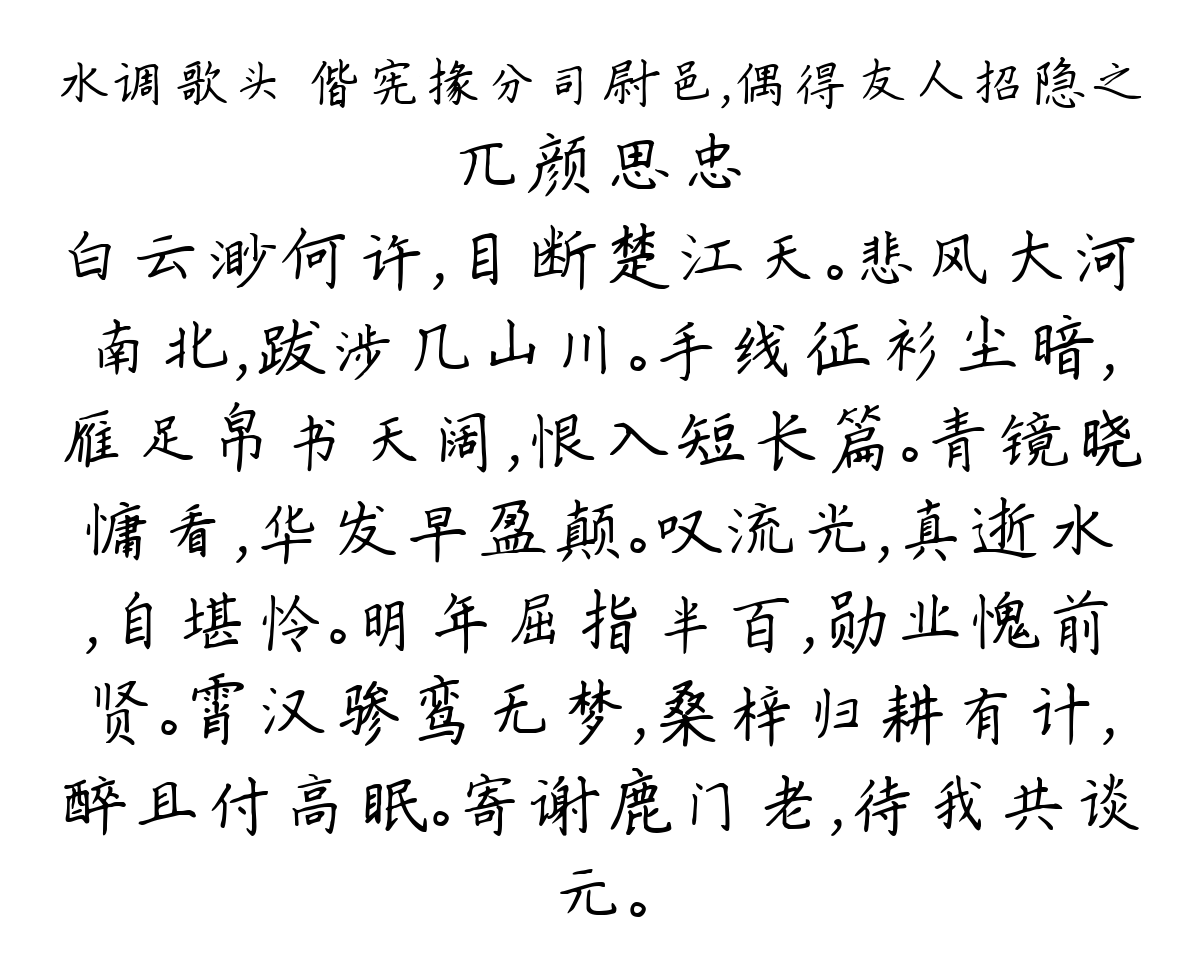 水调歌头 偕宪掾分司尉邑,偶得友人招隐之
兀颜思忠
白云渺何许,目断楚江天。悲风大河
南北,跋涉几山川。手线征衫尘暗,
雁足帛书天阔,恨入短长篇。青镜晓
慵看,华发早盈颠。叹流光,真逝水
,自堪怜。明年屈指半百,勋业愧前
贤。霄汉骖鸾无梦,桑梓归耕有计,
醉且付高眠。寄谢鹿门老,待我共谈
元。